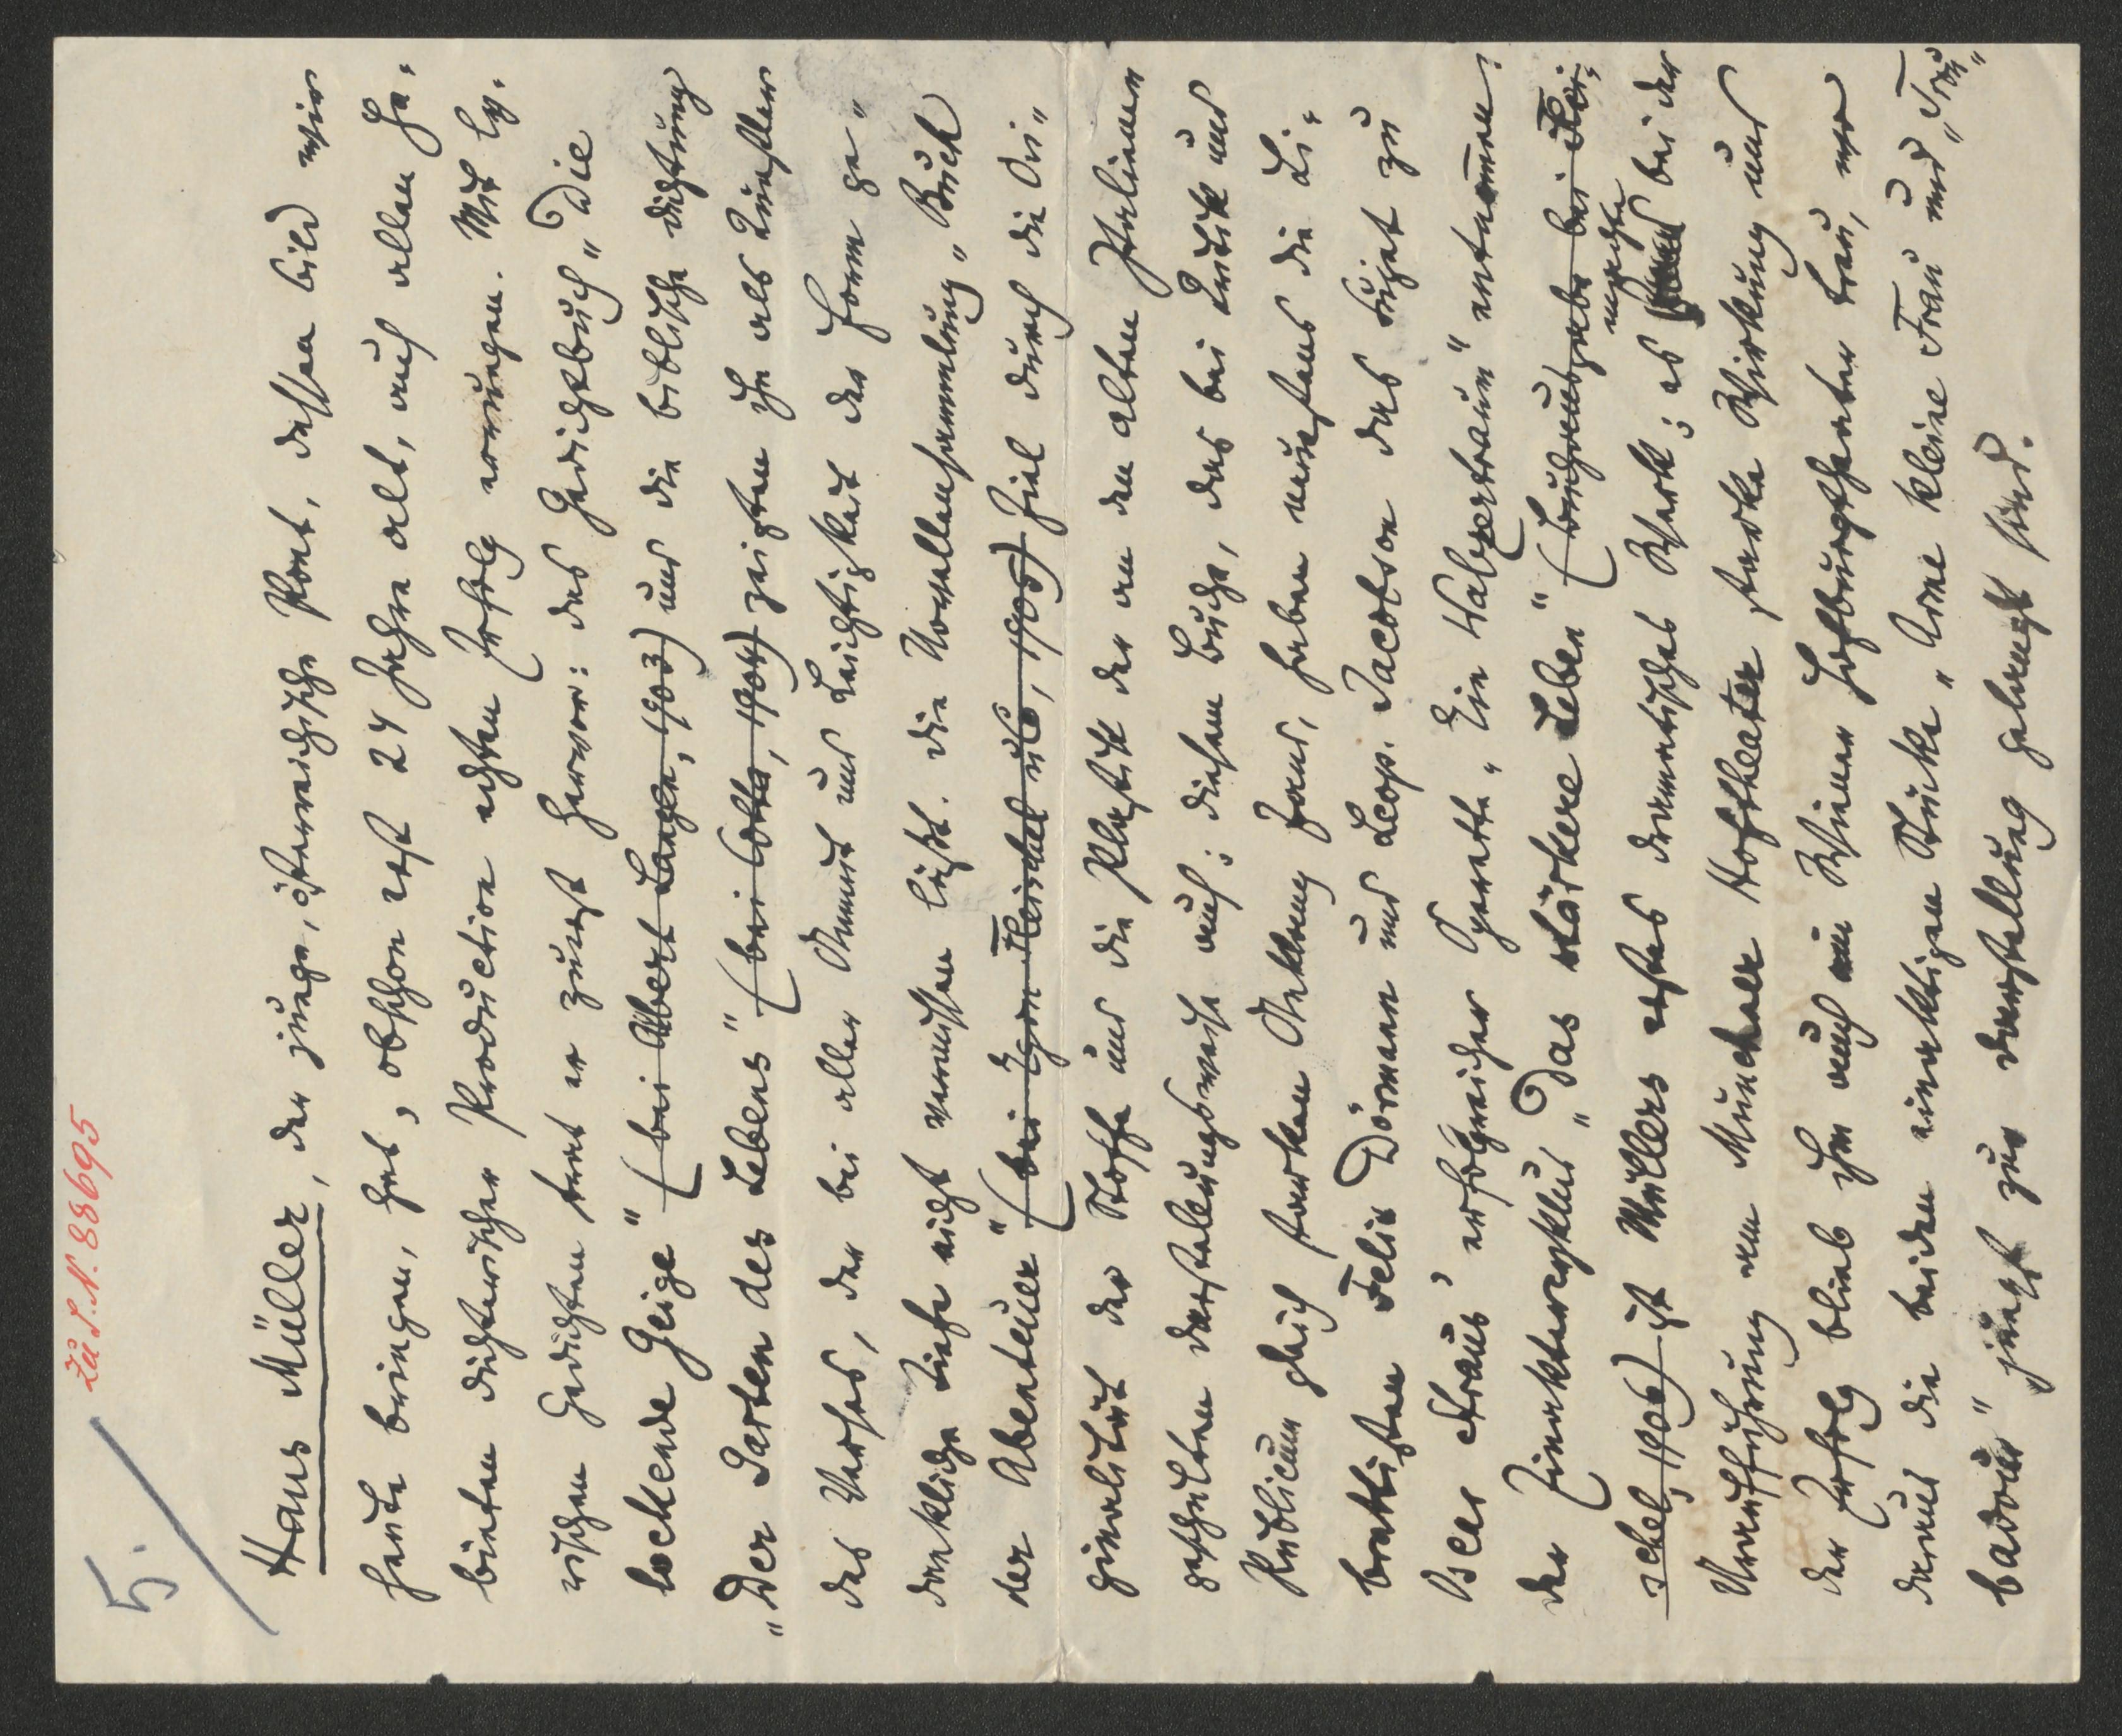 Zu I.N. 88695
5.
Hans Müller, der junge, österreichische Poet, dessen Bild wir
heute bringen, hat, obschon erst 24 Jahre alt, auf allen Ge-
bieten dichterischer Production echten Erfolg errungen. Mit ly-
rischen Gedichten trat er zuerst hervor: das Gedichtbuch „Die
lockende Geige" (bei Albert Langen, 1903) und die biblische Dichtung
„Der Garten des Lebens" (bei Cotta, 1904) zeigten ihn als Künstler
des Verses, der bei aller Anmut und Leichtigkeit der Form ge-
dankliche Tiefe nicht vermissen läßt. Die Novellensammlung „Buch
der Abenteuer" (bei Egon Fleischel u Co, 1905) fiel durch die Ori-
ginalität der Stoffe und die Plastik der an den alten Italienern
geschulten Darstellungsweise auf; diesem Buche, das bei Kritik und
Publicum gleich starken Anklang fand, haben neuestens die Li-
brettisten Felix Dörmann und Leop. Jacobson das Sujet zu
Oscar Straus' erfolgreicher Operette „Ein Walzertraum" entnommen.
Der Einaktercyklus „Das stärkere Leben" (Buchausgabe bei Flei-
schel, 1906) ist Müllers erstes dramatisches Werk; es machte bei der
Uraufführung am Münchener Hoftheater starke Wirkung und
der Erfolg blieb ihm auch am Wiener Hofburgtheater treu, wo
daraus die beiden einaktigen Stücke „Arme kleine Frau und „Trou-
badour" jüngst zur Darstellung gebracht sind.